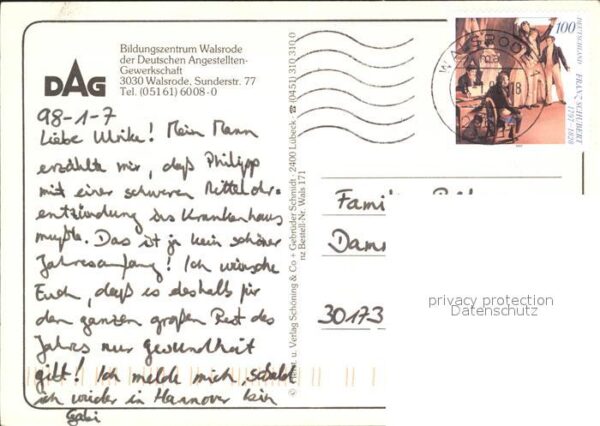 Bildungszentrum Walsrode
der Deutschen Angestellten-
Gewerkschaft
3030 Walsrode, Sunderstr. 77
Tel. (05161) 6008-0
DAG
98-1-7
Liebe Ulrike! Mein Mann
erzählte mir, daß Philipp
mit einer schweren Mittelohr-
entzündung ins Krankenhaus
mußte. Das ist ja kein schöner
Jahresanfang! Ich wünsche
Euch, daß es deshalb für
den ganzen großen Rest des
Jahres nur Gesundheit
gibt! Ich melde mich, sobald
ich wieder in Hannover bin
Gabi
Verlag Schöning & Co + Gebrüder Schmidt, 2400 Lübeck, ☎ (0451) 310 310,0
Bestell-Nr. Wals 171
WALSRODE
100
DEUTSCHLAND
FRANZ SCHUBERT
1797-1828
Fami
Dam
30173
privacy protection
Datenschutz